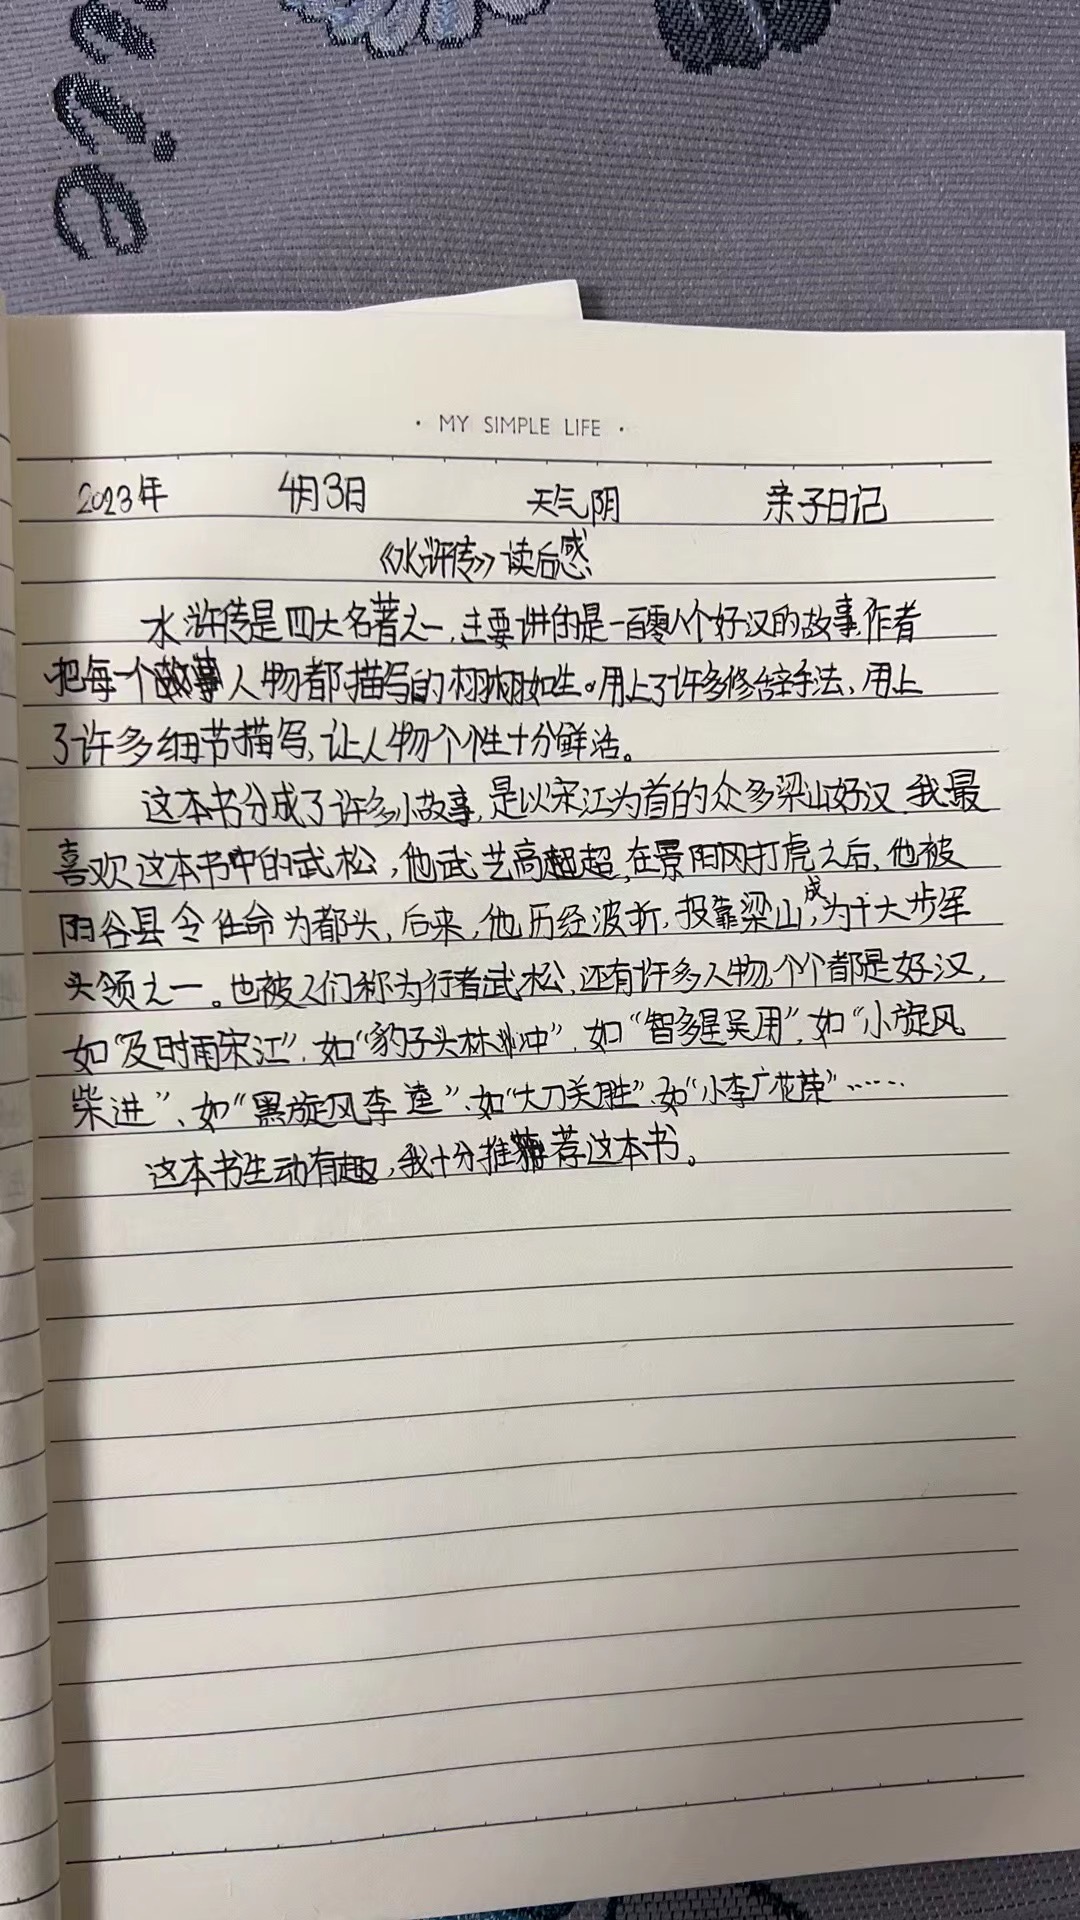 · MY SIMPLE LIFE ·
2023年 4月3日 天气阴 亲子日记
《水浒传》读后感
水浒传是四大名著之一,主要讲的是一百零八个好汉的故事,作者
把每一个人物都描写的栩栩如生。用上了许多修辞手法、用上
了许多细节描写,让人物个个性十分鲜活。
这本书分成了许多小故事,是以宋江为首的众多梁山好汉.我最
喜欢这本书中的武松,他武艺高超,在景阳冈打虎之后,他被
阳谷县令任命为都头,后来,他历经波折,投靠梁山,成为十大步军
头领之一。也被人们称为行者武松,还有许多人物,个个都是好汉,
如"及时雨宋江",如"豹子头林冲",如"智多星吴用",如"小旋风
柴进"、如"黑旋风李逵"、如"大刀关胜"、如"小李广花荣"……
这本书生动有趣,我十分推荐这本书。